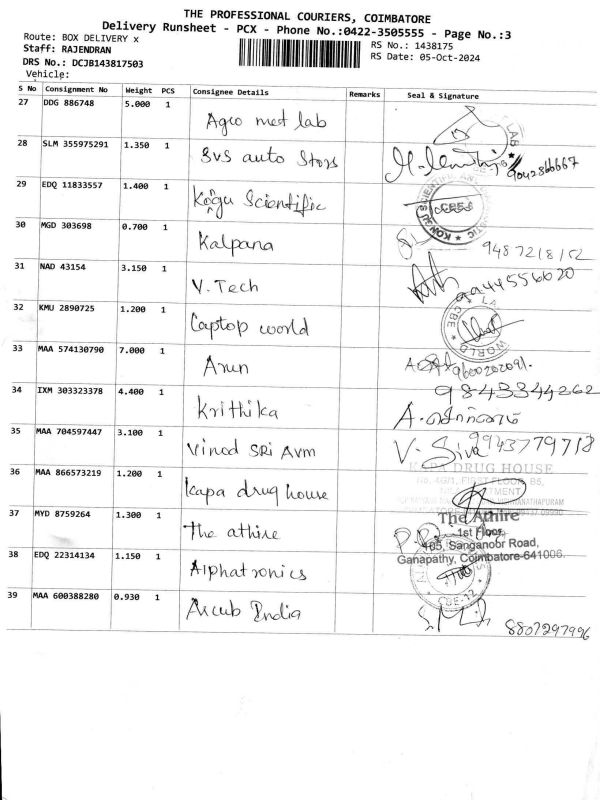 THE PROFESSIONAL COURIERS, COIMBATORE
Delivery Runsheet - PCX - Phone No.:0422-3505555 - Page No.:3
Route: BOX DELIVERY x
RS No.: 1438175
Staff: RAJENDRAN
RS Date: 05-Oct-2024
DRS No.: DCJB143817503
Vehicle:
S No Consignment No Weight PCS Consignee Details Remarks Seal & Signature
27 DDG 886748 5.000 1 Agro met lab
28 SLM 355975291 1.350 1 SVS auto Stors 9042866667
29 EDQ 11833557 1.400 1 Kogu Scientific
30 MGD 303698 0.700 1 Kalpana 9487218152
31 NAD 43154 3.150 1 V.Tech 9944556620
32 KMU 2890725 1.200 1 Laptop world
33 MAA 574130790 7.000 1 Arun 9600202091.
34 IXM 303323378 4.400 1 Krithika 9843344262
35 MAA 704597447 3.100 1 Vinod SRI AVM V. Siva 9943779718
36 MAA 866573219 1.200 1 Kapa drug house KAPA DRUG HOUSE
37 MYD 8759264 1.300 1 The athire The Athire
1st Floor,
405, Sanganoor Road,
Ganapathy, Coimbatore-641006.
38 EDQ 22314134 1.150 1 Alphatronics CBE-12
39 MAA 600388280 0.930 1 Arcub India 8807297996